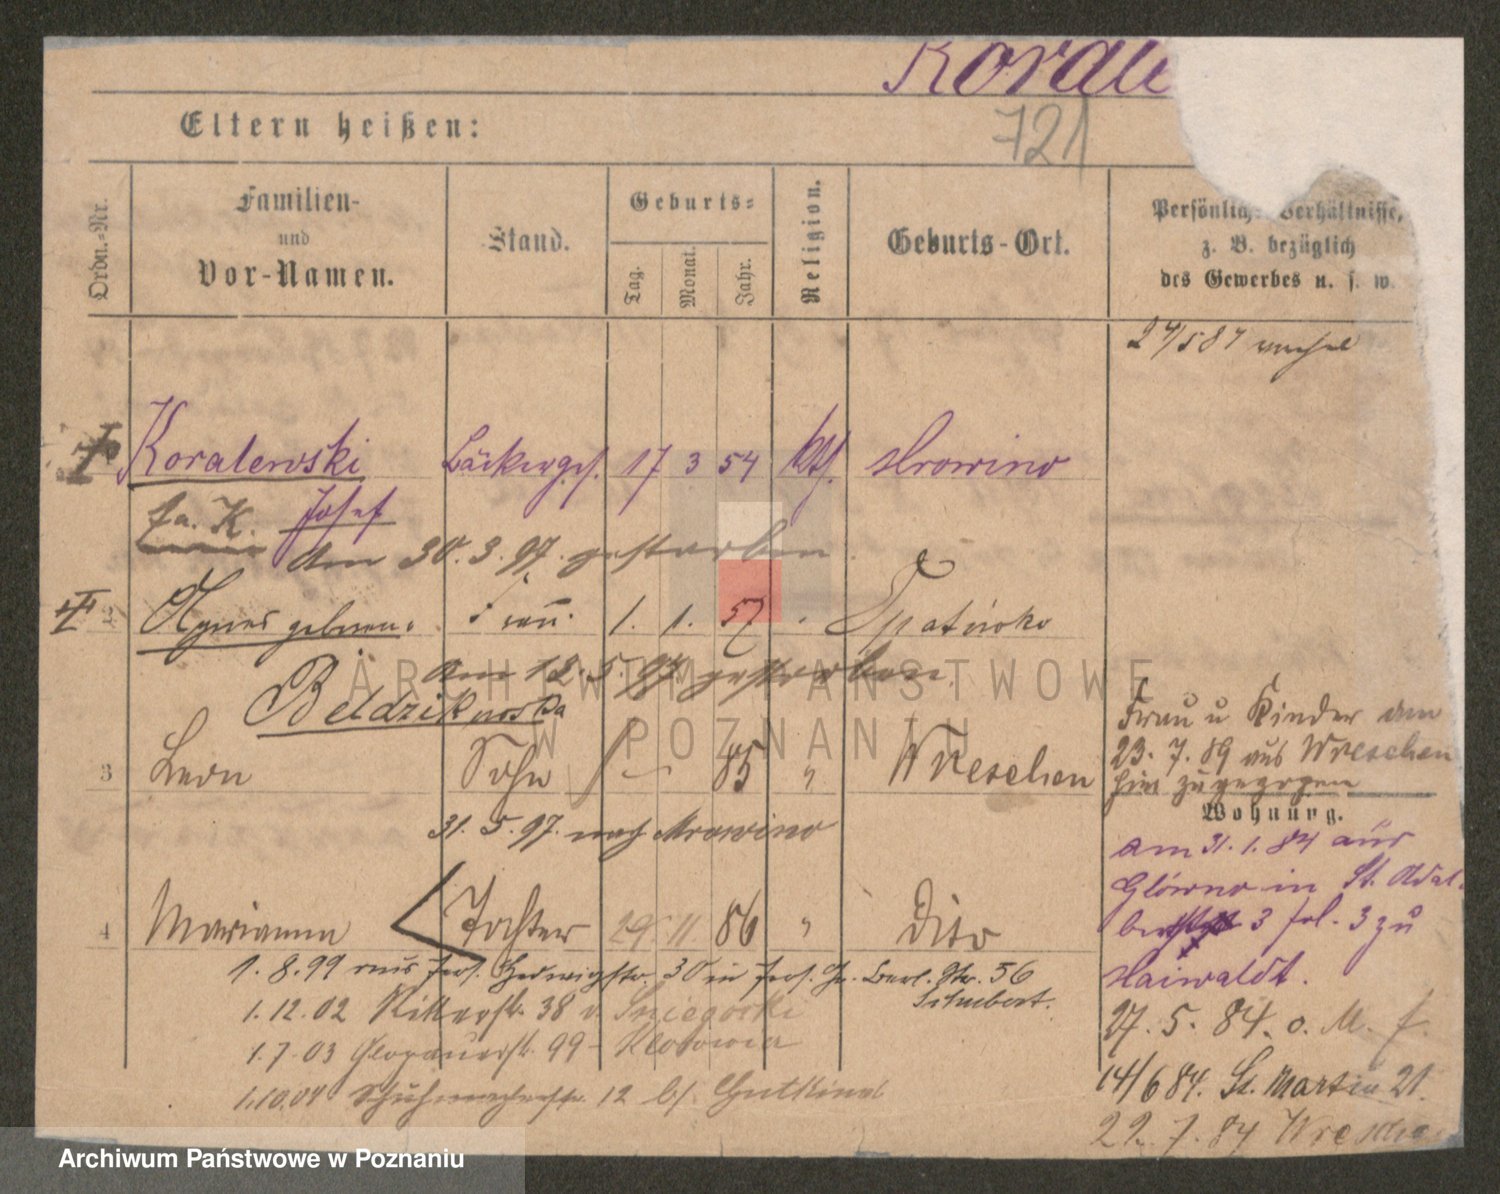 Korale
721
Eltern heißen:
Ordn.-Nr.
Familien-
und
Vor-Namen.
Stand.
Geburts-
Tag.
Monat.
Jahr.
Religion.
Geburts-Ort.
Persönliche Verhältnisse,
z. B. bezüglich
des Gewerbes u. s. w.
Koralewski Bäckerges. 17 3 54 kth. Mrowino
fa. K. Josef
Am 30. 3. 97. gestorben
2 Agnes geborene 1. 1. 57
Am 12. 5. 97 gestorben
3 Leon Sohn 85 " Wreschen
Frau u Kinder am
23. 7. 89 aus Wreschen
hier zugezogen
Wohnung.
31. 5. 97. nach Mrowino
am 31. 1. 84 aus
Glówno in St. Adal-
3 fol. 3 zu
Haiwaldt.
4 Marianna Tochter 29. 11. 86 " Dito
1. 8. 99 aus 30 in Berl. Str. 56
Schubert.
1. 12. 02 Ritterstr. 38 v. Sniegocki
1. 7. 03 Glogauerstr. 99
1. 10. 04 Schuhmacherstr. 12 b/
27. 5. 84. o. M. f.
14/6 84. St. Martin 21.
22. 7. 84 Wreschen
ARCHIWUM PAŃSTWOWE
W POZNANIU
Archiwum Państwowe w Poznaniu